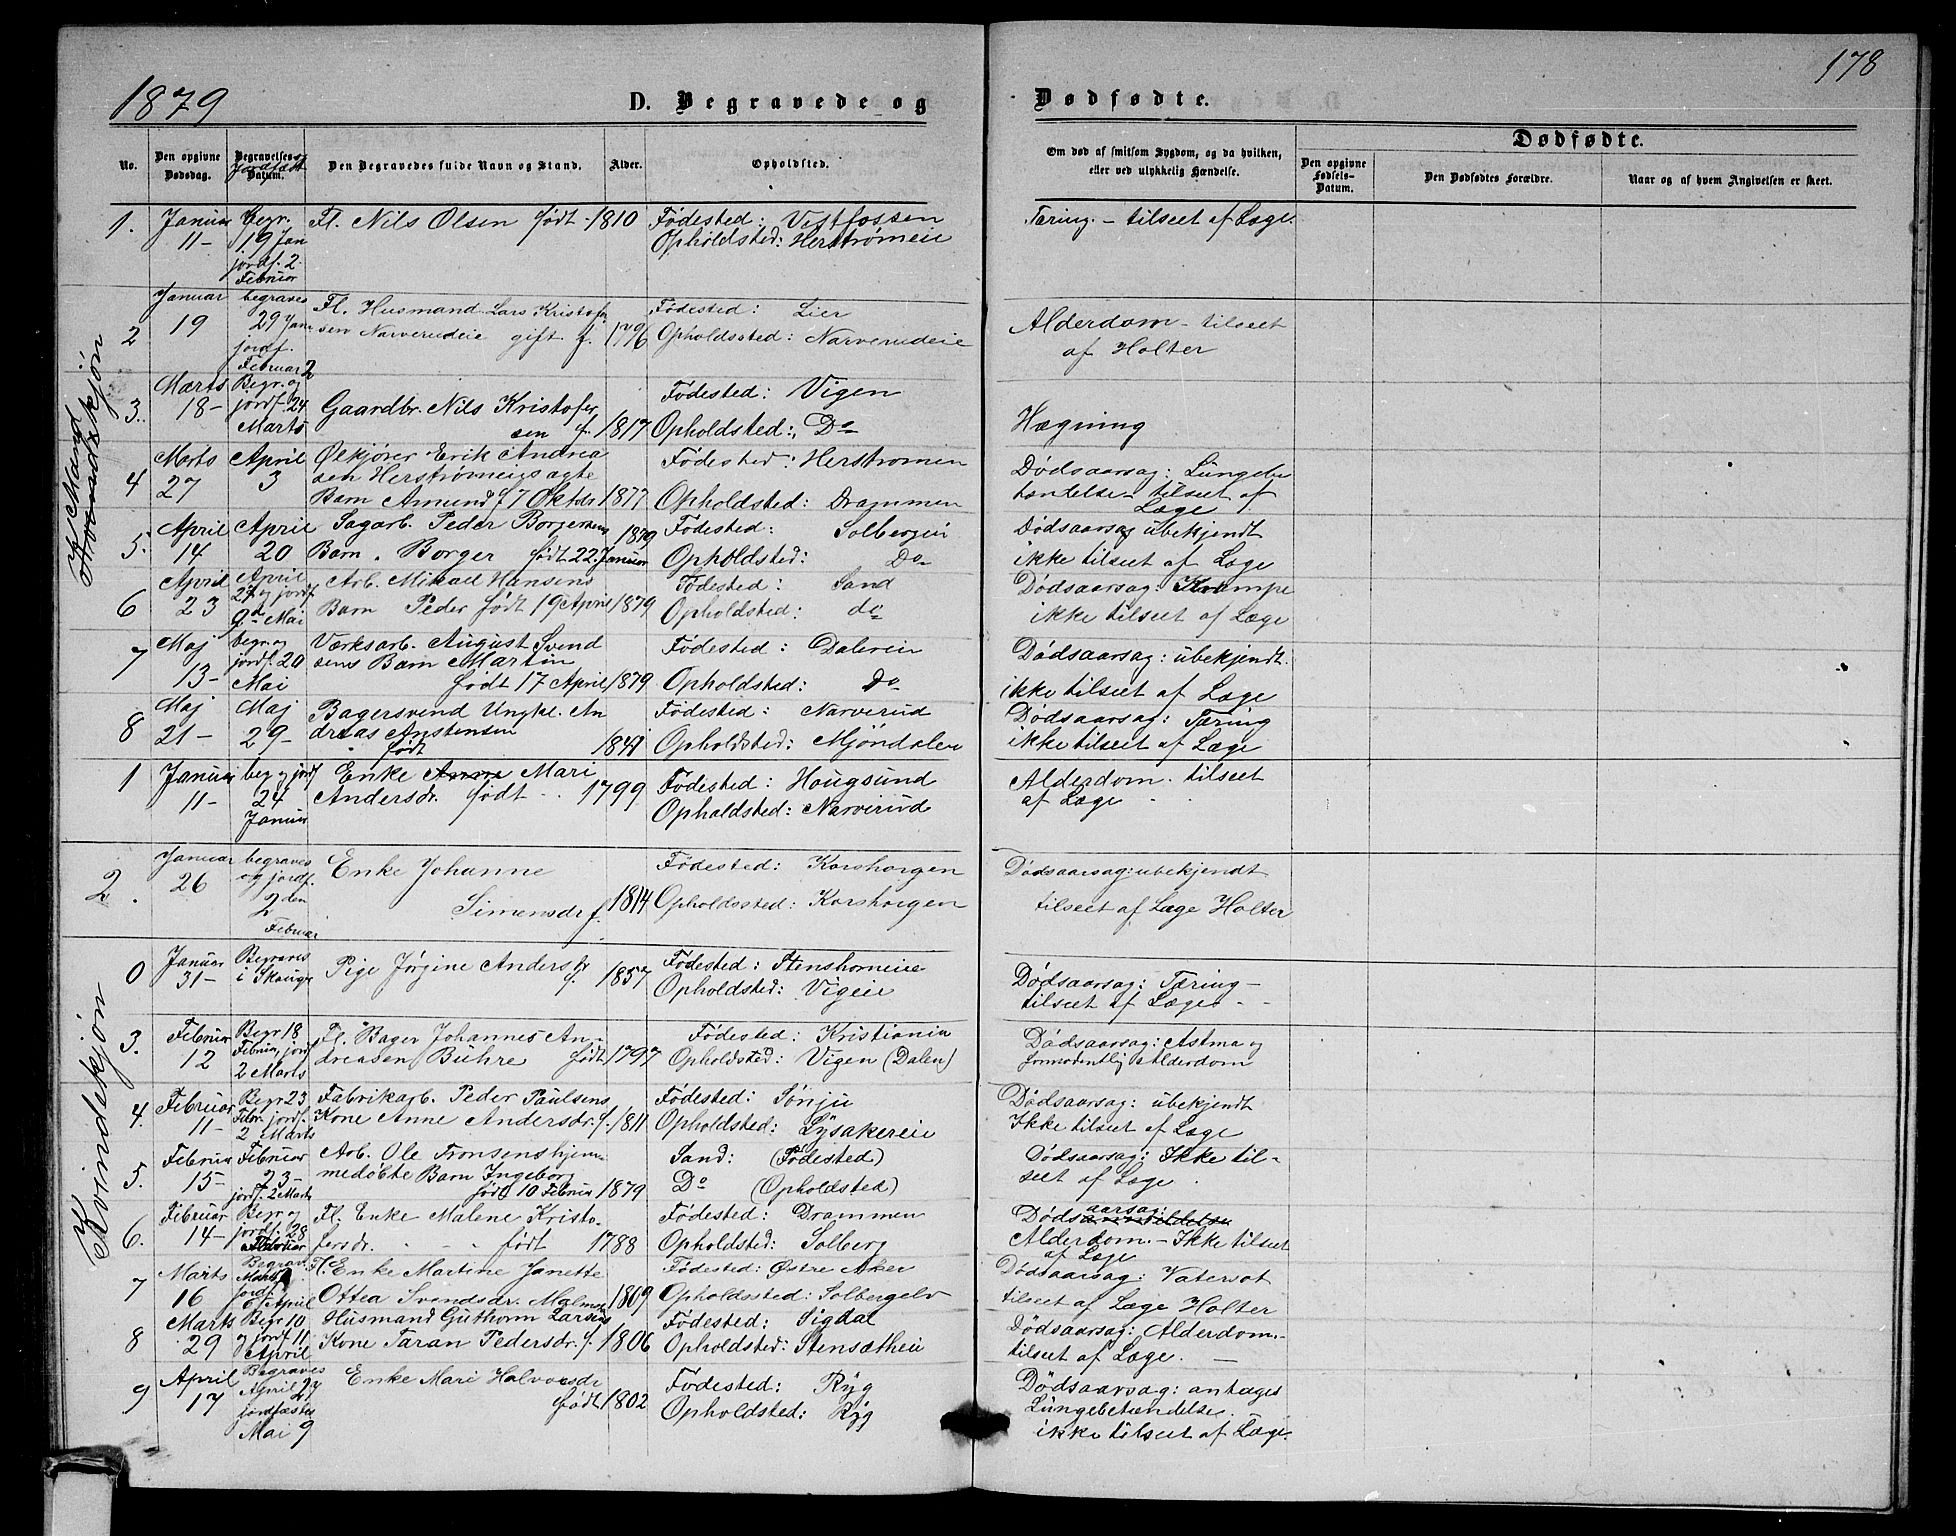 178
1879 D. Begravede og Dødfødte.
No. Den opgivne Dødsdag. Begravelses og Jordfæst. Datum. Den Begravedes fulde Navn og Stand. Alder. Opholdsted.
Om død af smitsom Sygdom, og da hvilken, eller ved ulykkelig Hændelse. Dødfødte.
Den opgivne Fødsels-Datum. Den Dødfødtes Forældre. Naar og af hvem Angivelsen er skeet.
Mandkjøn
1. Januar Begr. Fl. Nils Olsen født 1810 Fødested: Vestfossen Tæring. - tilseet af Læge.
11- 19 Jan Opholdsted: Herstrømeie
jordf. 2
Februar
Januar begraves Fl. Husmand Lars Kristofer Fødested: Lier Alderdom - tilseet
2 19 29 Jan sen Narverudeie gift f. 1796 Opholdssted: Narverudeie af Holter
jordf.
Februar 2
Marts Begr. og Fødested: Vigen
3. 18- jordf. 24 Gaardbr. Nils Kristofer Hægning
Marts sen f. 1817 Opholdsted: Do
Marts April Ølkjører Erik Andrea Fødested: Herstromen Dødsaarsag: Lungebe
4 27 3 sen Herstrømeies ægte tændelse - tilseet af
Barn Amund f 7 Oktbr 1877 Opholdsted: Drammen Læge.
April April Sagarb. Peder Borgersens 1879 Fødested: Solbergeie Dødsaarsag ubekjendt
5. 14 20 Barn. Borger født 22. Januar Opholdsted: Do ikke tilseet af Læge
April April Arb. Mikael Hansens Fødested: Sand Dødsaarsag: Krampe
6 23 27 og jordf Barn Peder født 19 April 1879 Opholdsted: do ikke tilseet af Læge
9d Mai
Maj begr. og Værksarb. August Svend Fødested: Dalereie Dødsaarsag: ubekjendt.
7 13- jordf. 20 sens Barn Martin
Mai født 17 April 1879 Opholdsted: Do ikke tilseet af Læge
Maj Maj Bagersvend Ungkl. An Fødested: Narverud Dødsaarsag: Tæring
8 21- 29- dreas Anstensen
født 1841 Opholdsted: Mjøndalen ikke tilseet af Læge
Kvindekjøn
1 Januar beg og jordf Enke Anne Mari Fødested: Hougsund Alderdom. tilseet
11- 24 Andersdr. født 1799 Opholdsted: Narverud af Læge
Januar
Januar begraves Enke Johanne Fødested: Korshorgen Dødsaarsag: ubekjendt
2. 26 og jordf. Simensdr f. 1814 Opholdssted: Korshorgen tilseet af Læge Holter
2 den
Februar
0 Januar Begraves Pige Jørgine Andersdr Fødested: Stenshorneie Dødsaarsag: Tæring -
31- i Skauge f. 1857 Opholdsted: Vigeie tilseet af Læge.
3. Februar Begr 18 Fl. Bager Johannes An- Fødested: Kristiania Dødsaarsag: Astma og
12 Februar, jordf dreasen Bühre født 1797 Opholdsted: Vigen (Dalen) formodentlig Alderdom
2 Marts
4. Februar Begr 23 Fabrikarb. Peder Paulsens Fødested: Sønju Dødsaarsag: ubekjendt
11- Febr. jordf. Kone Anne Andersdr. f. 1811 Opholdsted: Lysakereie Ikke tilseet af Læge
2 Marts
Februar Februar Arb. Ole Tronsens hjem- Sand: (Fødested) Dødsaarsag: Ikke til-
5. 15- 23- medøbte Barn Ingeborg
jordf. 2 Marts født 10 Februar 1879 Do (Opholdsted) seet af Læge.
Februar Begr og Fl. Enke Malene Kristo- Fødested: Drammen Dødsaarsag:
6. 14- jordf. 28 fersdr. født 1788 Opholdsted: Solberg Alderdom. - Ikke tilseet
Februar af Læge
7 Marts Begrav. Fl. Enke Martine Janette Fødested: Østre Aker Dødsaarsag: Vatersot
16 Marts jordf. Ottea Svendsdr. Malmsen 1809 Opholdssted: Solbergelv tilseet af Læge Holter
6 April
Marts Begr 10 Husmand Guthorm Larsens Fødested: Sigdal Dødsaarsag: Alderdom.-
8 29 og jordf 11 Kone Taran Pedersdr. f. 1806 Opholdsted: Stensætheie tilseet af Læge. -
April
April Begraves Enke Mari Halvorsdr Fødested: Ryg Dødsaarsag: antages
9 17 April 27 født 1802 Opholdsted: Ryg Lungebetændelse.
jordfæstes ikke tilseet af Læge.
Mai 9